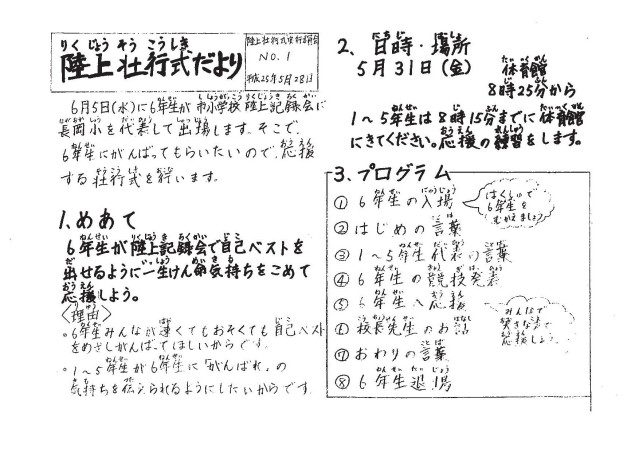 陸上壮行式だより
陸上壮行式実行委員会
NO.1
平成25年5月28日
6月5日(水)に6年生が市小学校陸上記録会に
長岡小を代表して出場します。そこで、
6年生にがんばってもらいたいので、応援
する壮行式を行います。
1.めあて
6年生が陸上記録会で自己ベストを
出せるように一生けん命気持ちをこめて
応援しよう。
〈理由〉
・6年生みんなが速くてもおそくても自己ベスト
をめざしがんばってほしいからです。
・1〜5年生が6年生に「がんばれ」の
気持ちを伝えられるようにしたいからです。
2、日時・場所
5月31日(金) 体育館
8時25分から
1〜5年生は8時15分までに体育館
にきてください。応援の練習をします。
3.プログラム
①6年生の入場
はくしゅで
6年生を
むかえましょう
②はじめの言葉
③1〜5年生代表の言葉
④6年生の競技発表
⑤6年生へ応援
みんなで
大きな声で
応援しよう。
⑥校長先生のお話
⑦おわりの言葉
⑧6年生退場